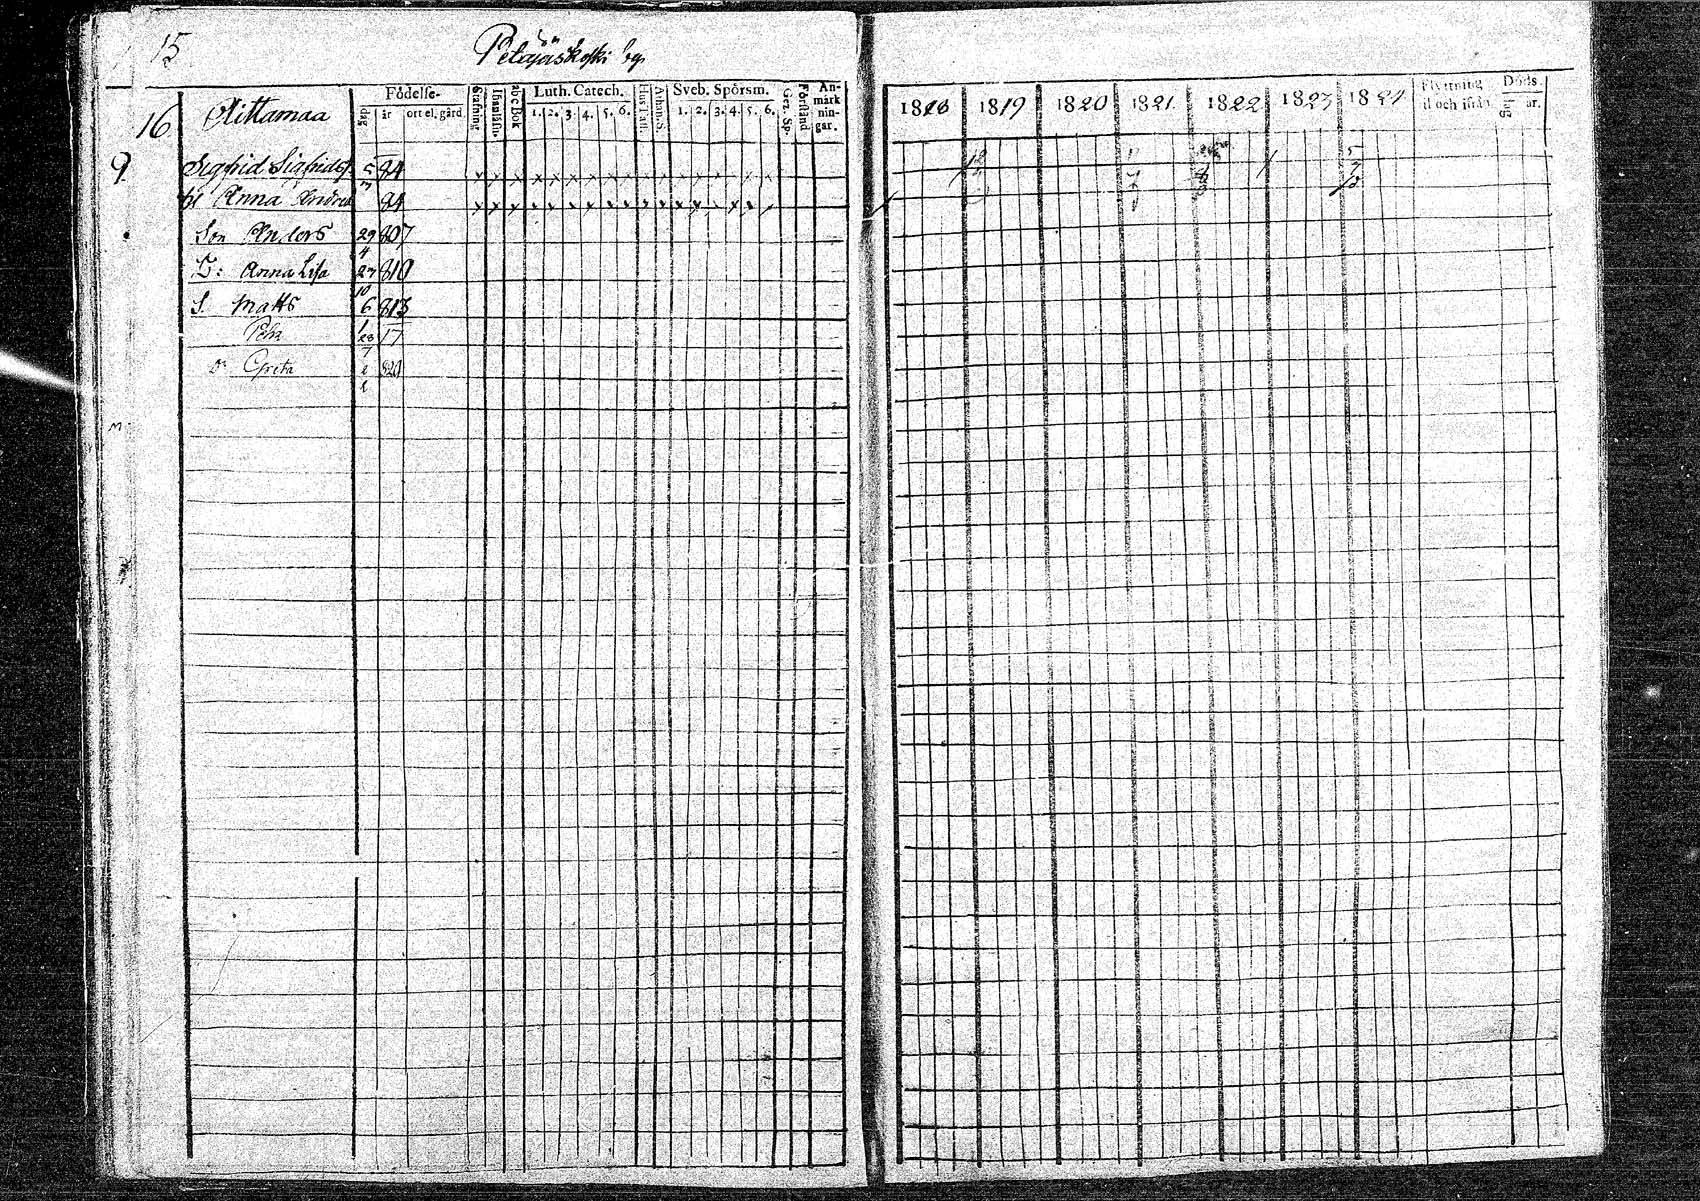 15
Petäjäskoski by
16 Aittamaa
Födelse- dag år ort el. gård
Stafning Innanläsn. abc bok
Luth. Catech. 1. 2. 3. 4. 5. 6.
Hus Tafl. Athan. S.
Sveb. Spörsm. 1. 2. 3. 4. 5. 6.
Gez. Sp. Förstånd
An-märk nin-gar.
1818 1819 1820 1821 1822 1823 1824
Flyttning til och ifrån
Döds- dag år.
9 Sigfrid Sigfridss. 84 x x x x x x x x x x x x x x x x x
h: Anna 84 x x x x x x x x x x x x x x x x x
Son Anders 29/4 807
D: Anna Lisa 27/10 810
S. Matts 6/1 813
Pehr 28/7 17
D: Greta 820